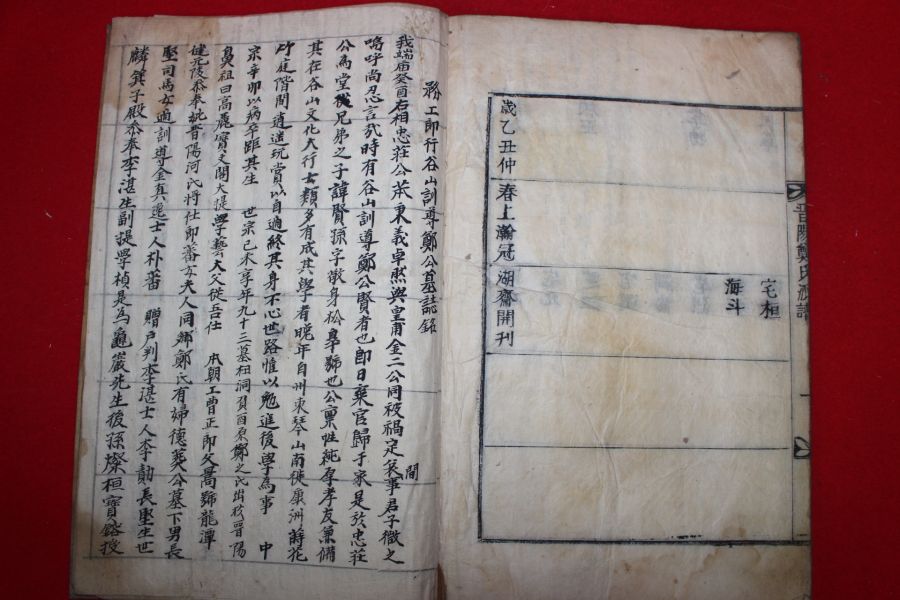 晋陽鄭氏派譜 一
宅桓
海斗
歲乙丑仲春上瀚冠湖齋開刊
務工郎行谷山訓導鄭公墓誌銘
間
我端廟癸酉右相忠莊公苯秉義卓然與皇甫金二公同被禍定策事君子微之
嗚呼尚忍言哉時有谷山訓導鄭公賢者也即日棄官歸于家是於忠莊
公為堂從兄弟之子諱賢孫字徵身松皐號也公稟性純厚孝友兼備
其在谷山文化大行士類多有成其學者晚年自州東琴山南徙康洲蒔花
竹庭階間逍遙玩賞以自適終其身不心世路惟以勉進後學為事 中
宗辛卯以病卒距其生 世宗己未享年九十三墓杻洞負酉原鄭之氏出於晋陽
鼻祖曰高麗寶文閣大提學藝大父徙吾仕 本朝工曹正郎父暠號龍潭
健元陵叅奉妣晋陽河氏將仕郎蕃女夫人同鄉鄭氏有婦德葬公墓下男長
堅司馬女適訓導金真進士人朴蕃 贈戶判李湛士人李勛長堅生世
麟箕子殿叅奉李湛生副提學楨是為龜巖先生後孫燦桓寶鎔授